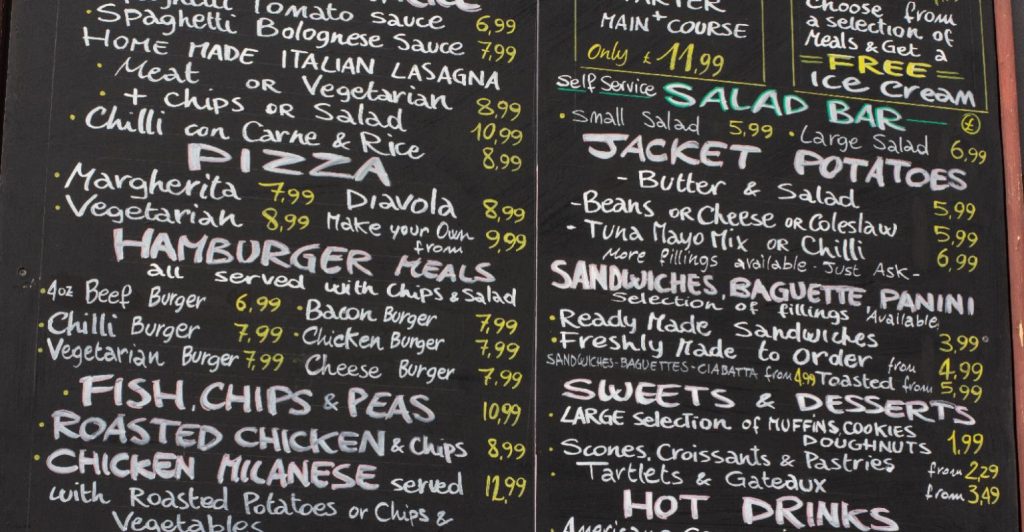 Spaghetti Tomato Sauce 6,99
Spaghetti Bolognese Sauce 7,99
HOME MADE ITALIAN LASAGNA
• Meat OR Vegetarian 8,99
• + Chips OR Salad 10,99
• Chilli con Carne & Rice 8,99
PIZZA
• Margherita 7,99 Diavola 8,99
• Vegetarian 8,99 Make your Own from 9,99
HAMBURGER MEALS
all served with chips & Salad
• 4oz Beef Burger 6,99 • Bacon Burger 7,99
• Chilli Burger 7,99 • Chicken Burger 7,99
• Vegetarian Burger 7,99 Cheese Burger 7,99
• FISH, CHIPS & PEAS 10,99
• ROASTED CHICKEN & Chips 8,99
• CHICKEN MILANESE served 12,99
with Roasted Potatoes or Chips &
Vegetables
MAIN + COURSE
Only £ 11,99
Choose from
a selection of
Meals & Get a
= FREE =
Ice Cream
Self Service SALAD BAR £
• Small Salad 5,99 • Large Salad 6,99
JACKET POTATOES
- Butter & Salad 5,99
- Beans OR Cheese OR Coleslaw 5,99
- Tuna Mayo Mix OR Chilli 6,99
More fillings available - Just Ask -
SANDWICHES, BAGUETTE, PANINI
Selection of fillings Available
• Ready Made Sandwiches 3,99
• Freshly Made to Order from 4,99
SANDWICHES - BAGUETTES - CIABATTA from 4,99 Toasted from 5,99
SWEETS & DESSERTS
• LARGE Selection of MUFFINS, COOKIES
DOUGHNUTS 1,99
• Scones, Croissants & Pastries from 2,29
• Tartlets & Gateaux from 3,49
HOT DRINKS